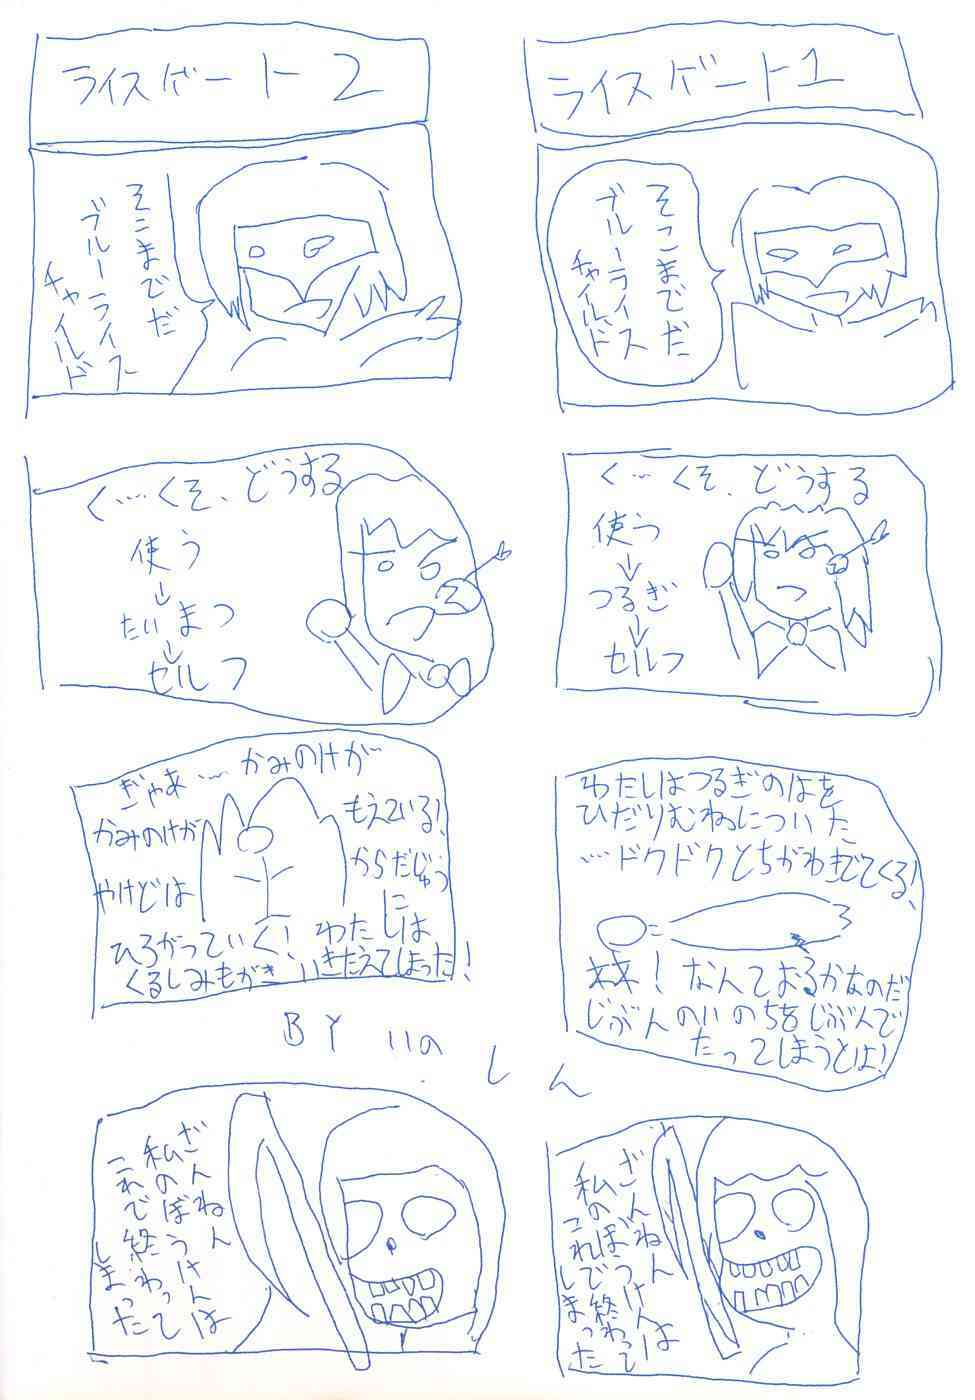 ライスゲート1
そこまでだ
ブルーライス
チャイルド
く…くそ、どうする
使う
↓
つるぎ
↓
セルフ
わたしはつるぎのはを
ひだりむねについた
…ドクドクとちがわきでてくる!
なんておろかなのだ
じぶんのいのちをじぶんで
たってしまうとは!
ざんねん
私のぼうけんは
これで終わって
しまった
ライスゲート2
そこまでだ
ブルーライス
チャイルド
く…くそ、どうする
使う
↓
たいまつ
↓
セルフ
ぎゃあ…かみのけが
かみのけが もえている!
やけどは からだじゅうに
ひろがっていく! わたしは
くるしみもがき いきたえてしまった!
BY いのしん
ざんねん
私のぼうけんは
これで終わって
しまった